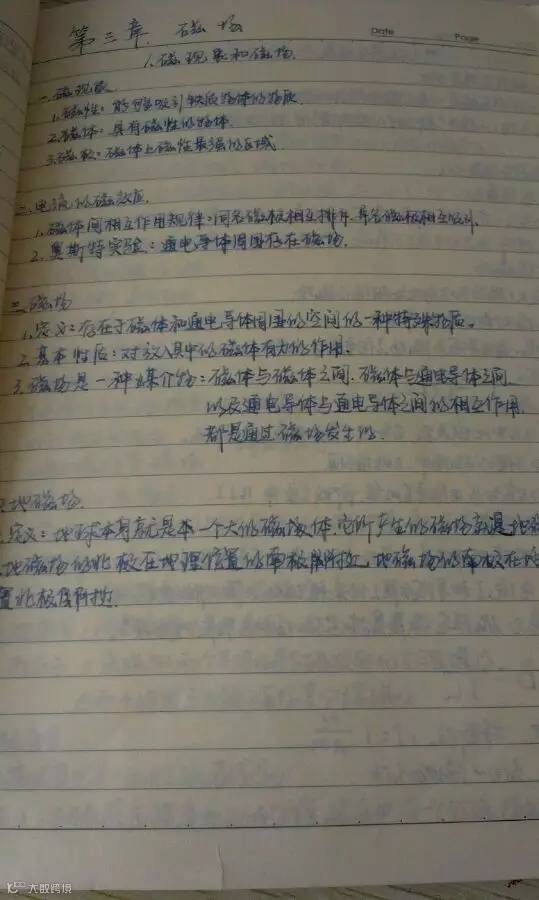 第三章. 磁场
Date Page
1.磁现象和磁场.
一.磁现象
1.磁性：能够吸引铁质物体的性质
2.磁体：具有磁性的物体.
3.磁极：磁体上磁性最强的区域.
二.电流的磁效应.
1.磁体间相互作用规律：同名磁极相互排斥.异名磁极相互吸引.
2.奥斯特实验：通电导体周围存在磁场.
三.磁场
1.定义：存在于磁体和通电导体周围的空间的一种特殊物质。
2.基本性质：对放入其中的磁体有力的作用.
3.磁场是一种媒介物：磁体与磁体之间.磁体与通电导体之间.
以及通电导体与通电导体之间的相互作用.
都是通过磁场发生的.
地磁场.
定义：地球本身就是本一个大的磁体,它所产生的磁场就是地磁
地磁场的北极在地理位置的南极附近,地磁场的南极在地
置北极附近.
大数跨境